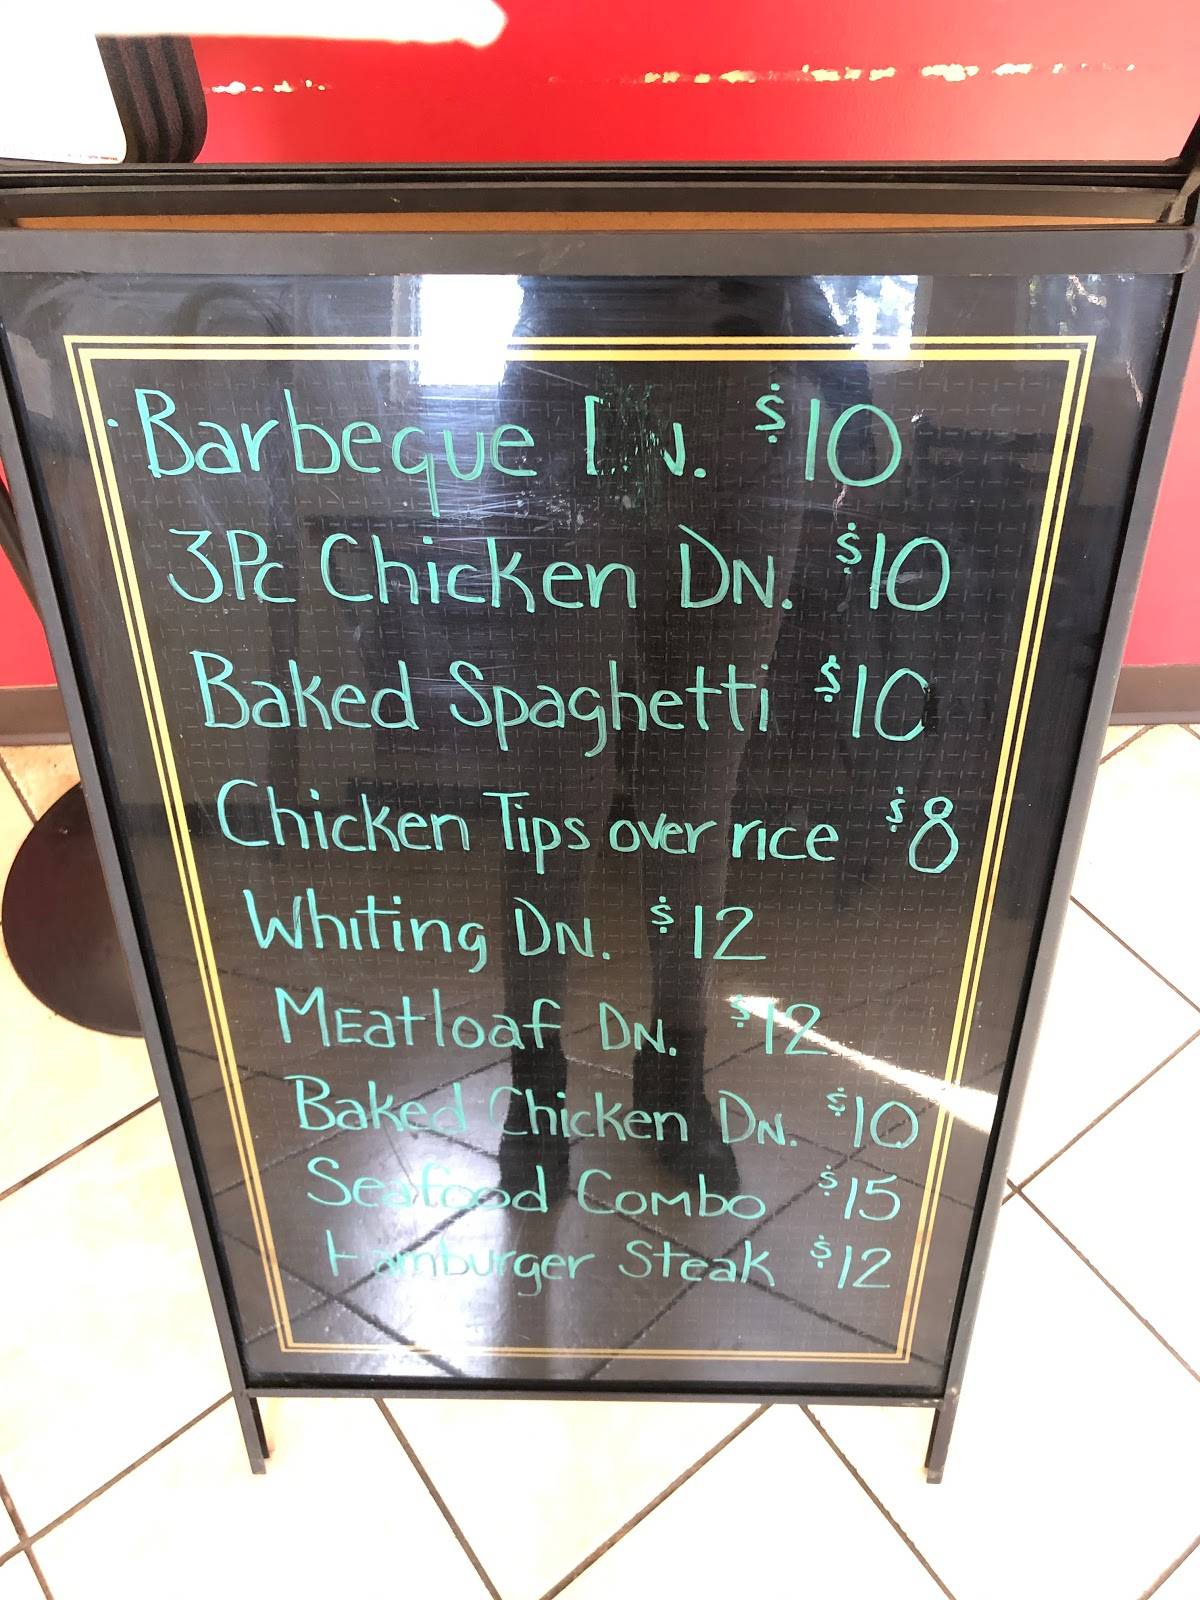 Barbeque DN. $10
3Pc Chicken DN. $10
Baked Spaghetti $10
Chicken Tips over rice $8
Whiting DN. $12
Meatloaf DN. $12
Baked Chicken DN. $10
Seafood Combo $15
Hamburger Steak $12